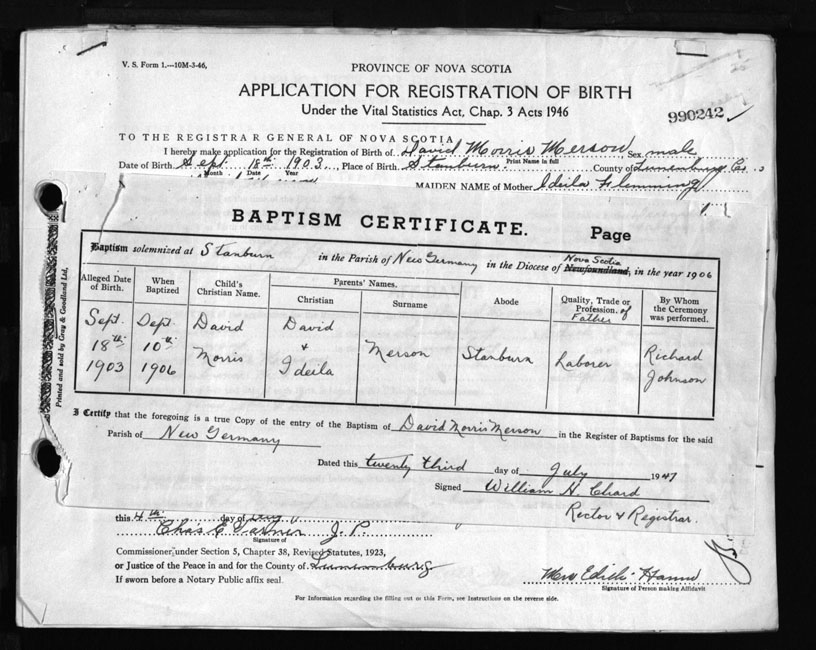 V. S. Form 1.—10M-3-46,
PROVINCE OF NOVA SCOTIA
APPLICATION FOR REGISTRATION OF BIRTH
Under the Vital Statistics Act, Chap. 3 Acts 1946
990242
TO THE REGISTRAR GENERAL OF NOVA SCOTIA
I hereby make application for the Registration of Birth of David Morris Merson Sex male
Print Name in full
Date of Birth Sept. 18th 1903 Place of Birth Stanburn County of Lunenburg Co.
Month Date Year
MAIDEN NAME of Mother Ideila Flemming
BAPTISM CERTIFICATE.
Page
Baptism solemnized at Stanburn in the Parish of New Germany in the Diocese of Nova Scotia Newfoundland, in the year 1906
Alleged Date of Birth. When Baptized Child's Christian Name. Parents' Names. Christian Surname Abode Quality, Trade or Profession. of Father By Whom the Ceremony was performed.
Sept. Sept. David David
18th 10th Morris & Merson Stanburn Laborer Richard
1903 1906 Ideila Johnson
I Certify that the foregoing is a true Copy of the entry of the Baptism of David Morris Merson in the Register of Baptisms for the said
Parish of New Germany
Dated this twenty third day of July 1947
Signed William H. Chard
Rector & Registrar.
Printed and sold by Gray & Goodland Ltd,
this 4th day of Aug
Chas E J. P.
Signature of
Commissioner under Section 5, Chapter 38, Revised Statutes, 1923,
or Justice of the Peace in and for the County of Lunenburg
If sworn before a Notary Public affix seal.
Mrs Edith
Signature of Person making Affidavit
For Information regarding the filling out of this Form, see Instructions on the reverse side.